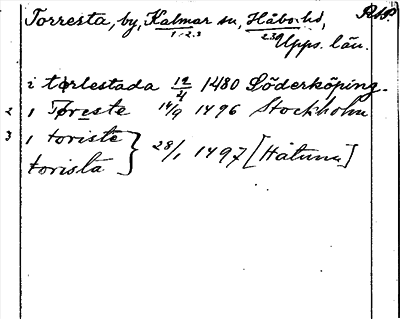 Torresta, by, Kalmar sn, Håbo hd, RAP.
1. 2. 3 2 3 Upps. län.
i torlestada 12/4 1480 Söderköping.
2 i Toreste 14/9 1496 Stockholm
3 i toriste
torista } 28/1 1497 [Håtuna]